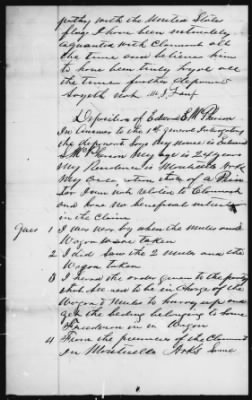 pathy with the United States
flag I have been intimately
aquanted with Claimant all
this time and believe him
to have been true, loyal all
the time further deponent
Sayeth not M. J. Fary
Deposition of Edward E. McPherson
In answer to the 1st general Interrogatory
the deponent Says My name is Edward
E McPherson My age is 24 years
My Residence Monticello Arks
My occupation that of a
I am not related to Claimant
and have no beneficial interest
in the Claim
1 I was near by when the mules and
Wagon were taken
2 I did Saw the 2 mules and the
Wagon taken
3 I heard the order given to the party
that seemed to be in Charge of the
Wagon & Mules to hurry up and
get the beding belonging to some
in a Wagon
4 From the premises of the Claimant
In Monticello Arks Some